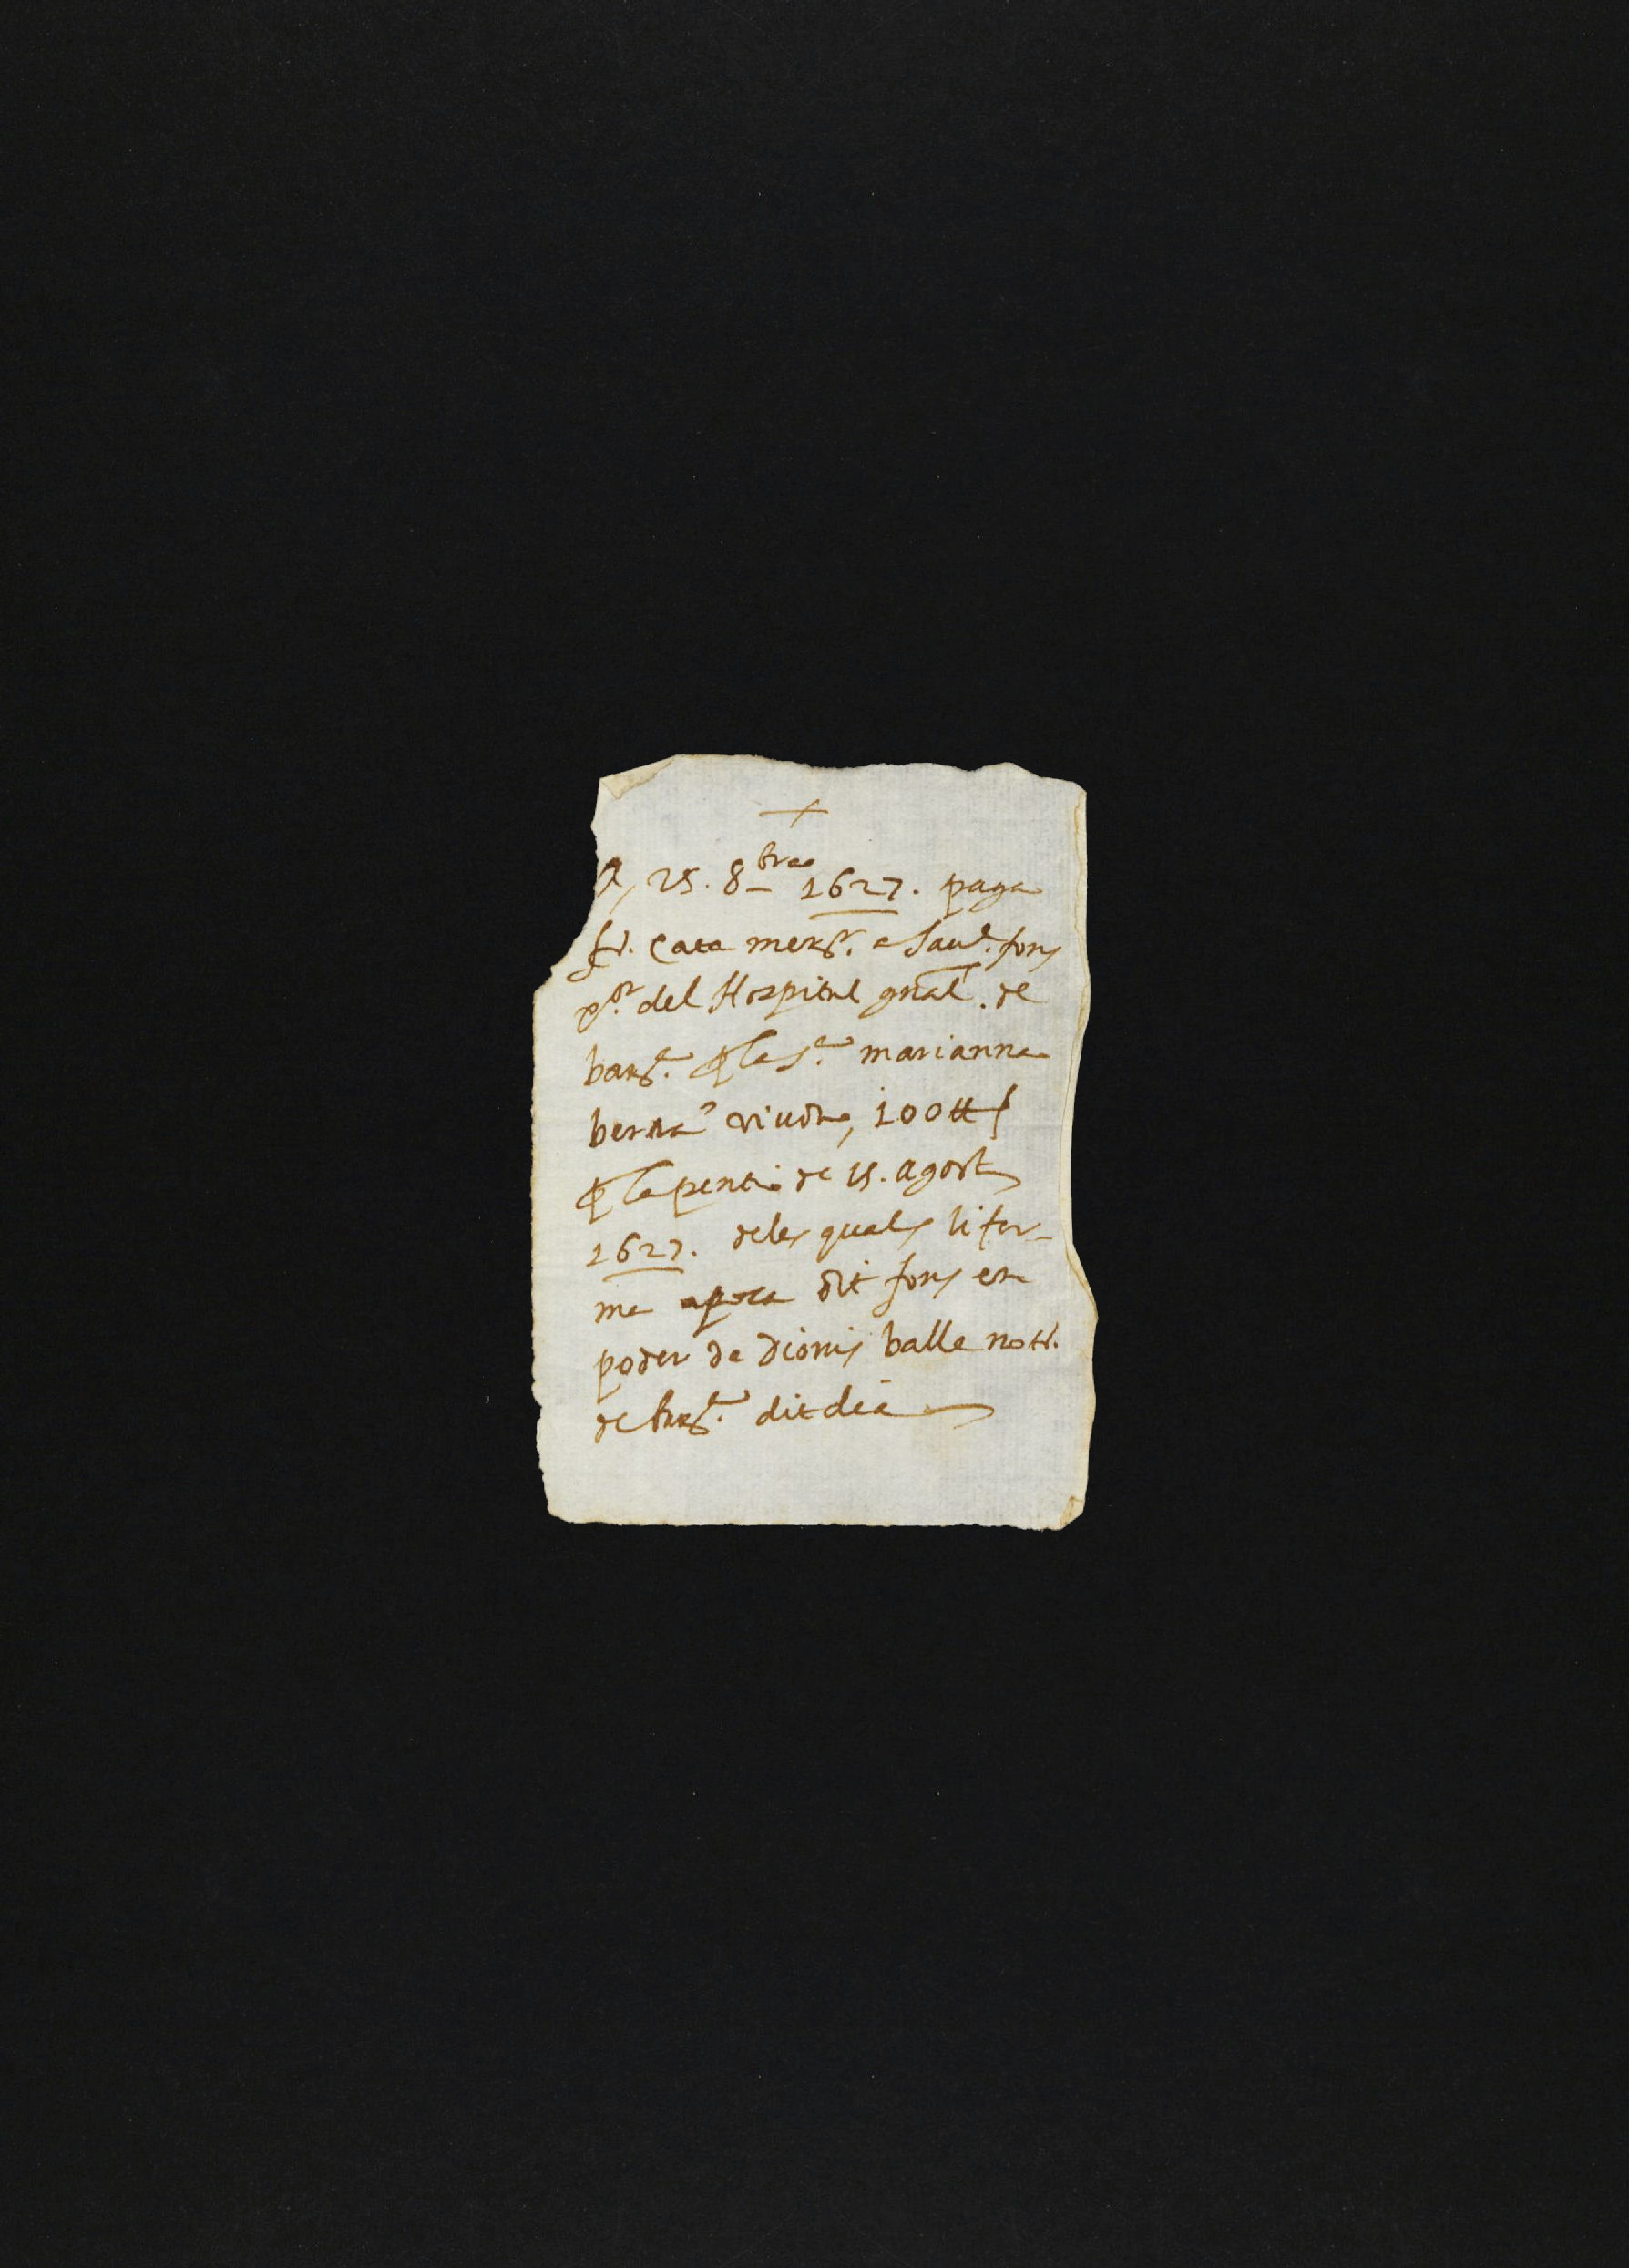 +
A, 25. 8bre 1627. paga
fr. Cata merͬ. a Saul. fons
pͦʳ. del Hospital gnal. de
barͣ. ꝑ la sͬᵃ marianna
berna viuda, 100 ℔
ꝑ la pentio de 15. agost
1627. deles quals li fer-
ma apoca dit fons en
poder de dionis balle notͬ.
de barͣ. dit dia